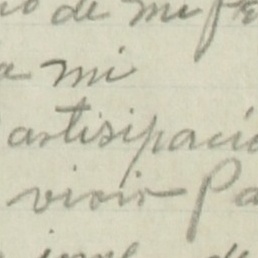 de mi
a mi
artisipació
vivir Pa
de